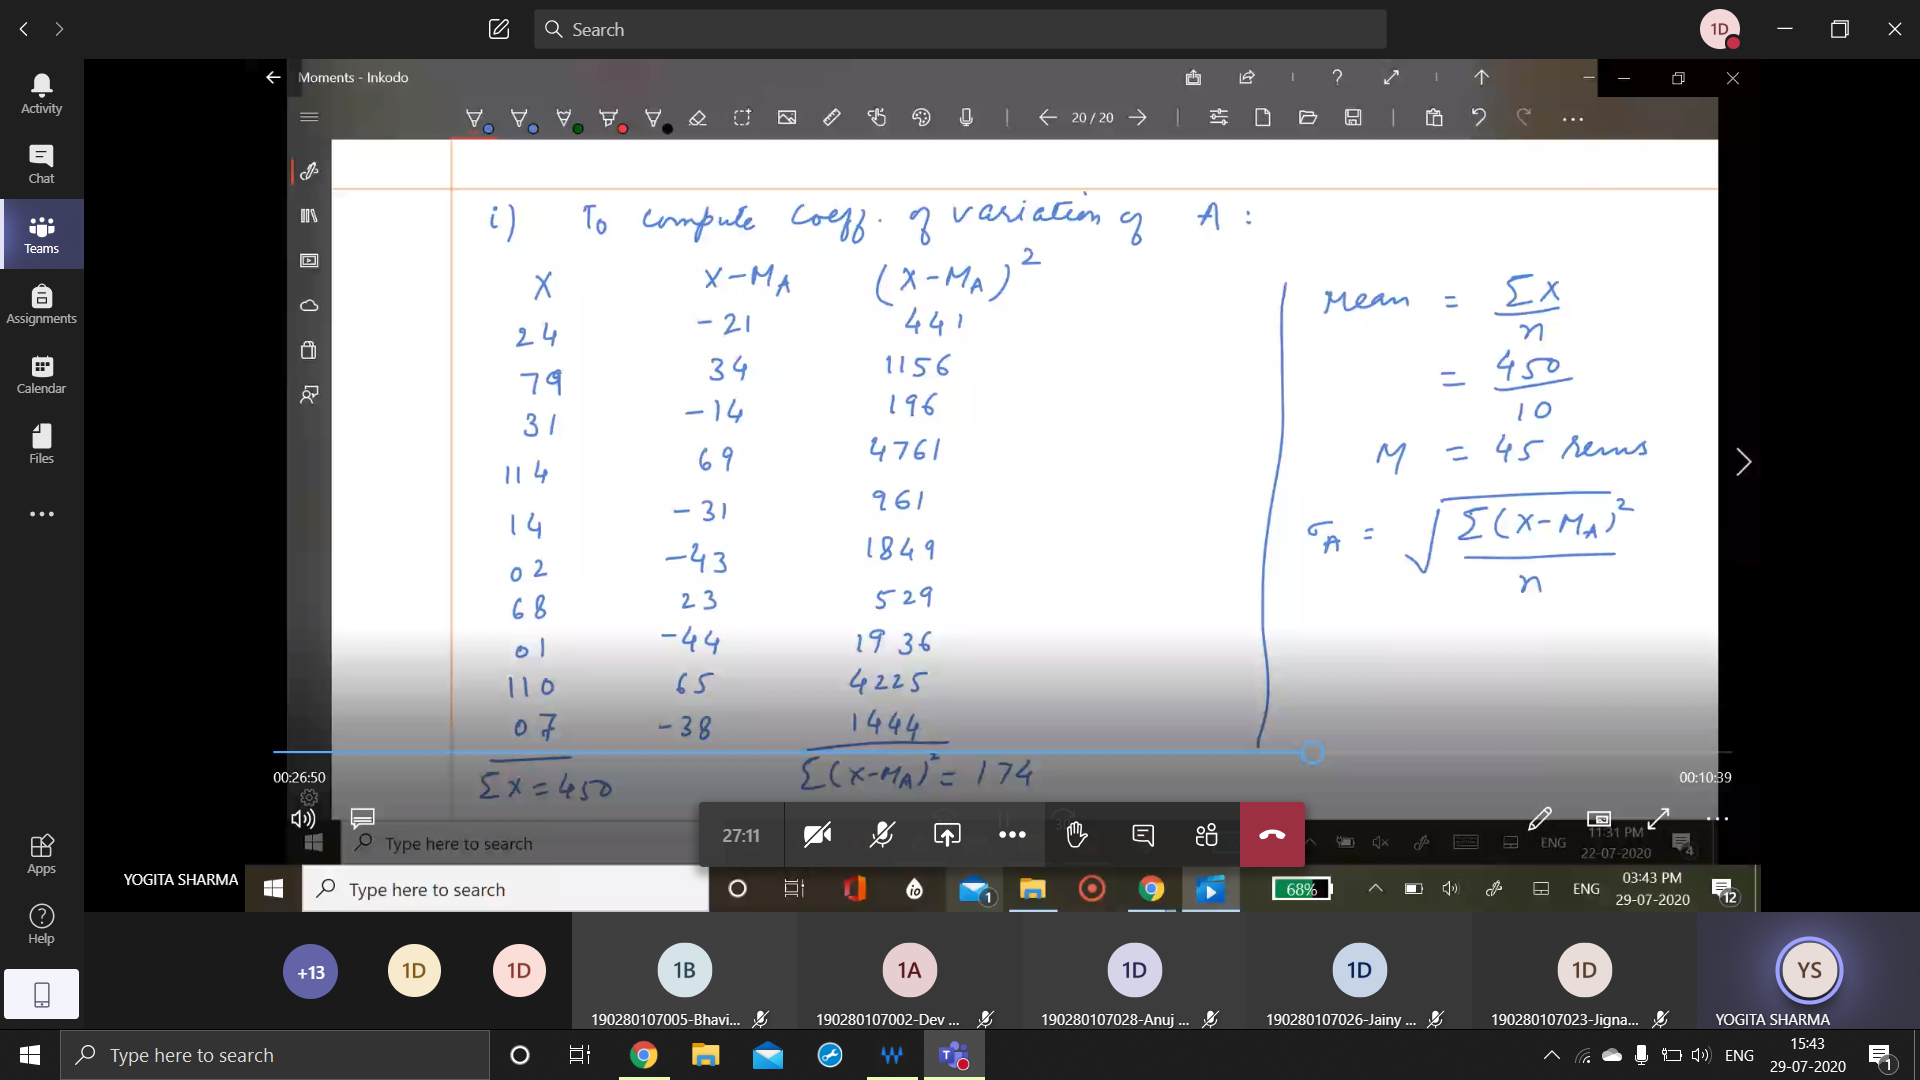 Search
1D
Activity
Chat
Teams
Assignments
Calendar
Files
Apps
Help
Moments - Inkodo
20 / 20
i) To compute coeff. of variation of A :
X X-M_A (X-M_A)²
24 -21 441
79 34 1156
31 -14 196
114 69 4761
14 -31 961
02 -43 1849
68 23 529
01 -44 1936
110 65 4225
07 -38 1444
Σ X = 450 Σ(X-M_A)² = 174
Mean = ΣX / n
= 450 / 10
M = 45 runs
σ_A = √ Σ(X-M_A)² / n
00:26:50
00:10:39
27:11
Type here to search
ENG
11:31 PM
22-07-2020
4
YOGITA SHARMA
Type here to search
1
68%
ENG
03:43 PM
29-07-2020
12
+13
1D
1D
1B
190280107005-Bhavi...
1A
190280107002-Dev ...
1D
190280107028-Anuj ...
1D
190280107026-Jainy ...
1D
190280107023-Jigna...
YS
YOGITA SHARMA
Type here to search
ENG
15:43
29-07-2020
1